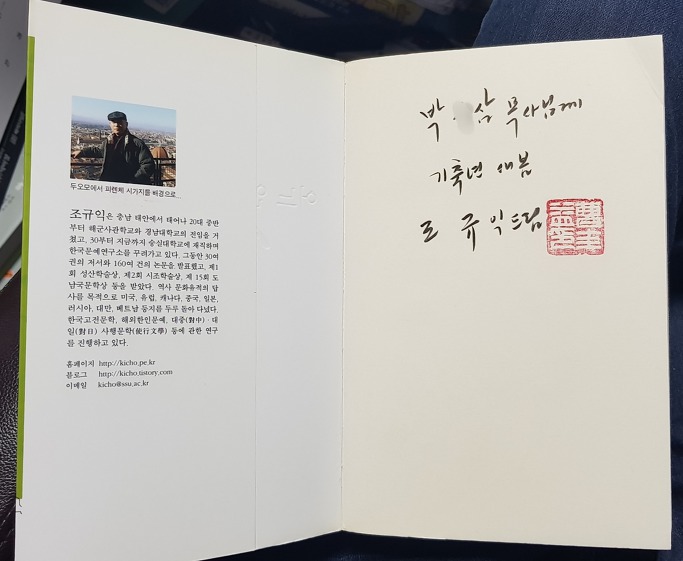 두오모에서 피렌체 시가지를 배경으로...
조규익은 충남 태안에서 태어나 20대 중반
부터 해군사관학교와 경남대학교의 전임을 거
쳤고, 30부터 지금까지 숭실대학교에 재직하며
한국문예연구소를 꾸려가고 있다. 그동안 30여
권의 저서와 160여 건의 논문을 발표했고, 제1
회 성산학술상, 제2회 시조학술상, 제 15회 도
남국문학상 등을 받았다. 역사 문화유적의 답
사를 목적으로 미국, 유럽, 캐나다, 중국, 일본,
러시아, 대만, 베트남 등지를 두루 돌아 다녔다.
한국고전문학, 해외한인문예, 대중(對中)·대
일(對日) 사행문학(使行文學) 등에 관한 연구
를 진행하고 있다.
홈페이지 http://kicho.pe.kr
블로그 http://kicho.tistory.com
이메일 kicho@ssu.ac.kr
박 삼 목사님께
기축년 새봄
조규익 드림